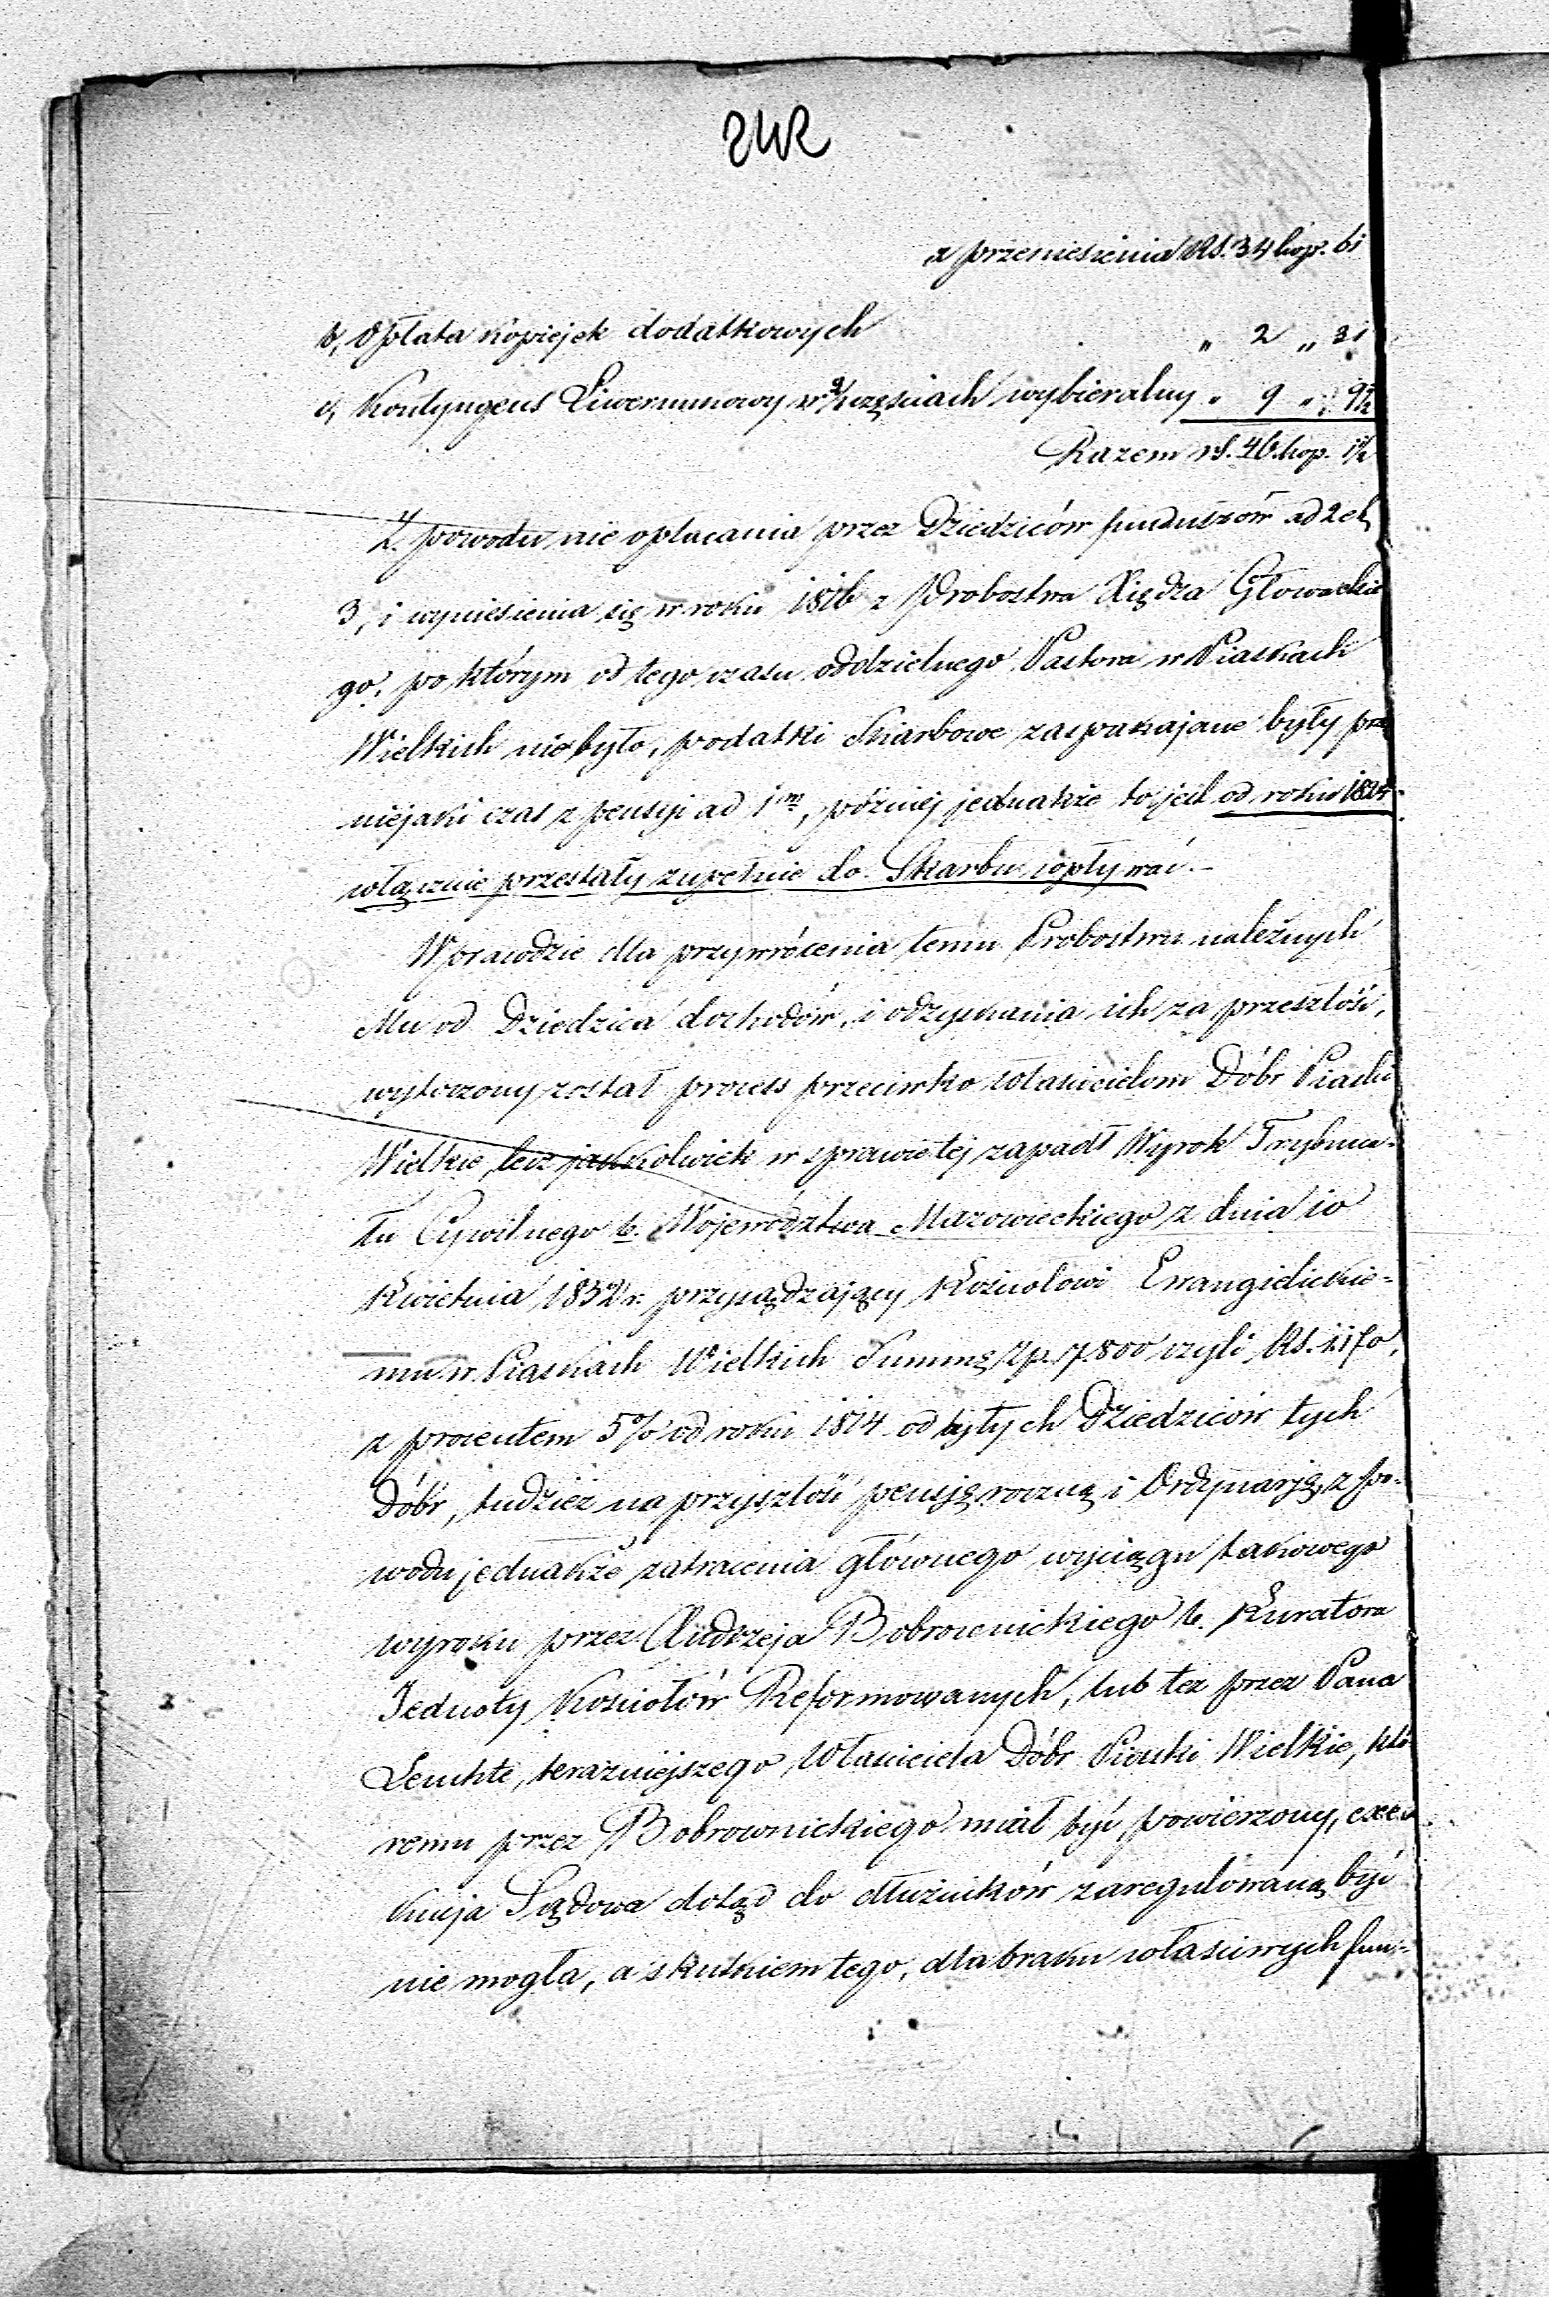 242
z przeniesienia Rs. 34 kop. 61
b, Opłata kopiejek dodatkowych " 2 " 31
c, Kontyngens Liwerunkowy w częściach wybieralny " 9 " 9½
Razem rs. 46. kop. 1½
Z powodu nie opłacania przez Dziedziców funduszów ad 2 et
3, i wyniesienia się w roku 1816 z Probostwa Xiędza Głowackie
go, po którym od tego czasu oddzielnego Pastora w Piaskach
Wielkich nie było, podatki Skarbowe zaspakajane były przez
niejaki czas z pensyi ad 1m, później jednakże to jest od roku 1824
włącznie przestały zupełnie do Skarbu wpływać.-
Wprawdzie dla przywrócenia temu Probostwu należnych
Mu od Dziedzica dochodów, i odzyskania ich za przeszłość,
wytoczony został process przeciwko właścicielom Dóbr Piaski
Wielkie, lecz jakkolwiek w sprawie tej zapadł Wyrok Trybuna-
łu Cywilnego b. Województwa Mazowieckiego z dnia 10
Kwietnia 1832 r. przysądzający Kościołowi Ewangielickie-
mu w Piaskach Wielkich Summę Zp. 7.800 czyli Rs. 1170,
z procentem 5% od roku 1814 od byłych Dziedziców tych
Dóbr, tudzież na przyszłość pensję roczną i Ordynarję, z po-
wodu jednakże zatracenia głównego wyciągu takowego
wyroku przez Andrzeja Bobrownickiego b. Kuratora
Jednoty Kościołów Reformowanych, lub też przez Pana
Leuchte, teraźniejszego Właściciela Dóbr Piaski Wielkie, któ
remu przez Bobrownickiego miał być powierzony, exe
kucja Sądowa dotąd do dłużników zaregulowaną być
nie mogła, a skutkiem tego, dla braku właściwych fun-